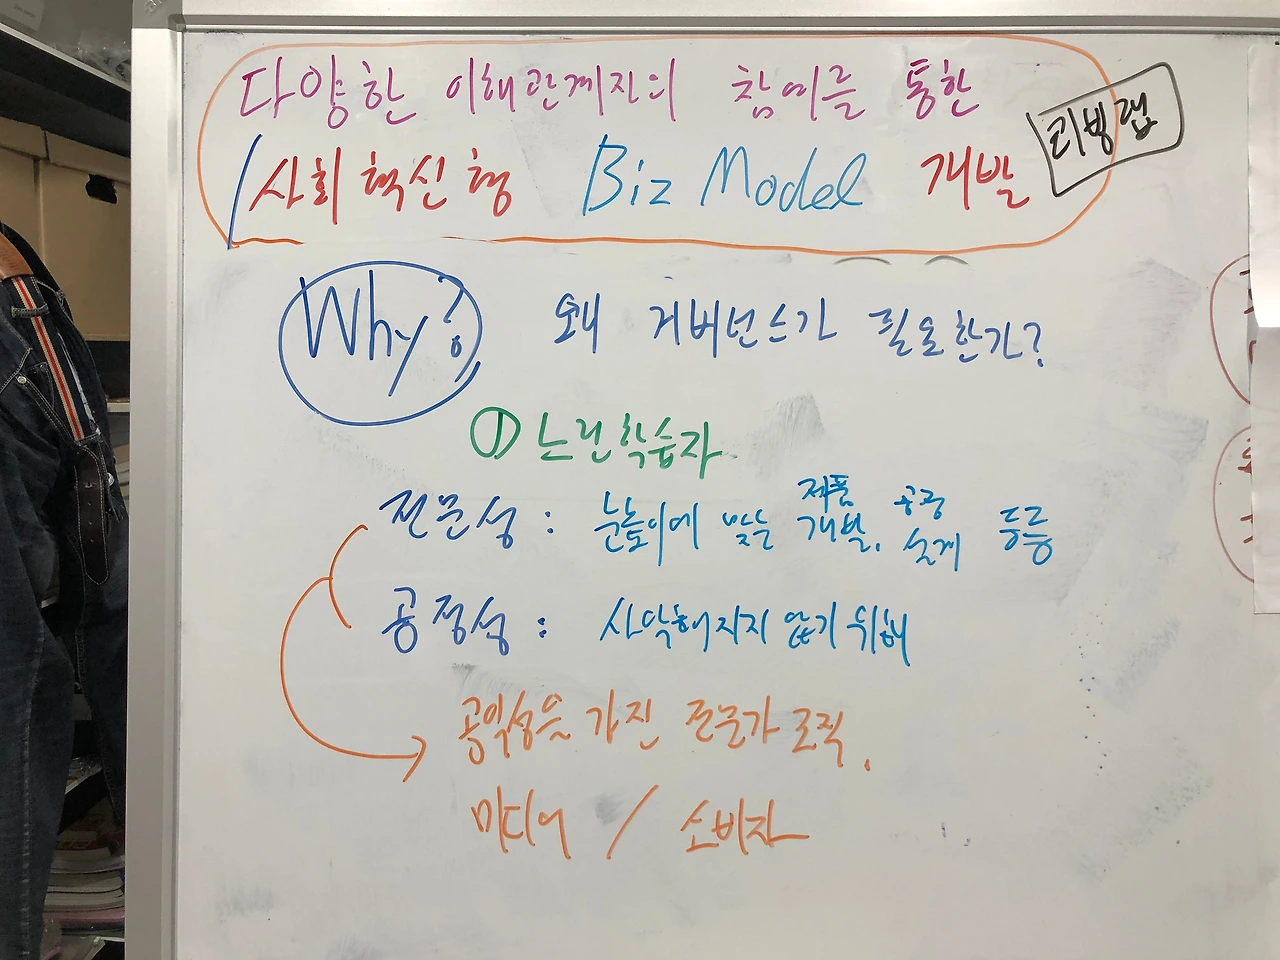 다양한 이해관계자의 참여를 통한
사회혁신형 Biz Model 개발
리빙랩
Why? 왜 거버넌스가 필요한가?
① 느린학습자
전문성 : 눈높이에 맞는 제품 개발, 공중 설계 등등
공정성 : 사악해지지 않기 위해
공익성을 가진 전문가 조직.
미디어 / 소비자